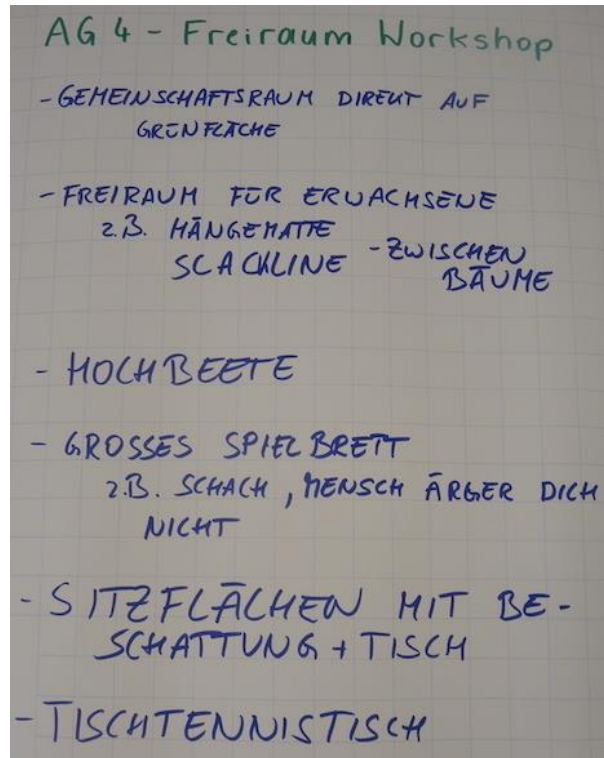 AG 4 - Freiraum Workshop
- GEMEINSCHAFTSRAUM DIREKT AUF
GRÜNFLÄCHE
- FREIRAUM FÜR ERWACHSENE
z.B. HÄNGEMATTE
SCACKLINE - ZWISCHEN
BÄUME
- HOCHBEETE
- GROSSES SPIELBRETT
z.B. SCHACH, MENSCH ÄRGER DICH
NICHT
- SITZFLÄCHEN MIT BE-
SCHATTUNG + TISCH
- TISCHTENNISTISCH